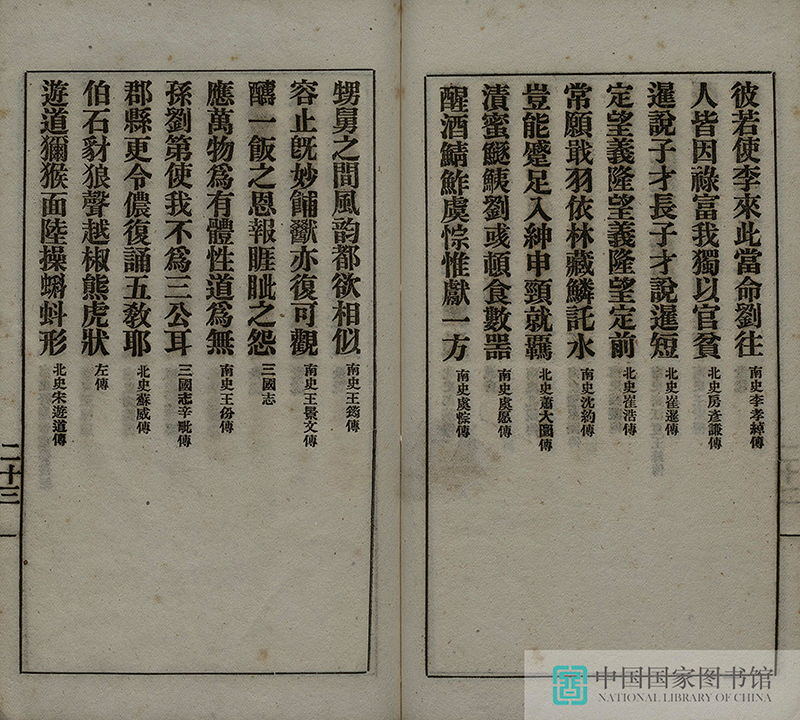 彼若使李來此當命劉往 南史李孝綽傳
人皆因祿富我獨以官貧 北史房彥謙傳
暹說子才長子才說暹短 北史崔暹傳
定望義隆望義隆望定前 北史崔浩傳
常願戢羽依林藏鱗託水 南史沈約傳
豈能蹙足入絆申頸就羈 北史蕭大圜傳
漬蜜鱁鮧劉彧頓食數噐 南史虞愿傳
醒酒鯖鮓虞悰惟獻一方 南史虞悰傳
甥舅之間風韵都欲相似 南史王筠傳
容止旣妙餔歠亦復可觀 南史王景文傳
醻一飯之恩報睚眦之怨 三國志
應萬物爲有體性道爲無 南史王份傳
孫劉第使我不爲三公耳 三國志辛毗傳
郡縣更令儂復誦五敎耶 北史蘇威傳
伯石豺狼聲越椒熊虎狀 左傳
遊道獼猴面陸操蝌蚪形 北史宋遊道傳
二十三
中国国家图书馆
NATIONAL LIBRARY OF CHINA